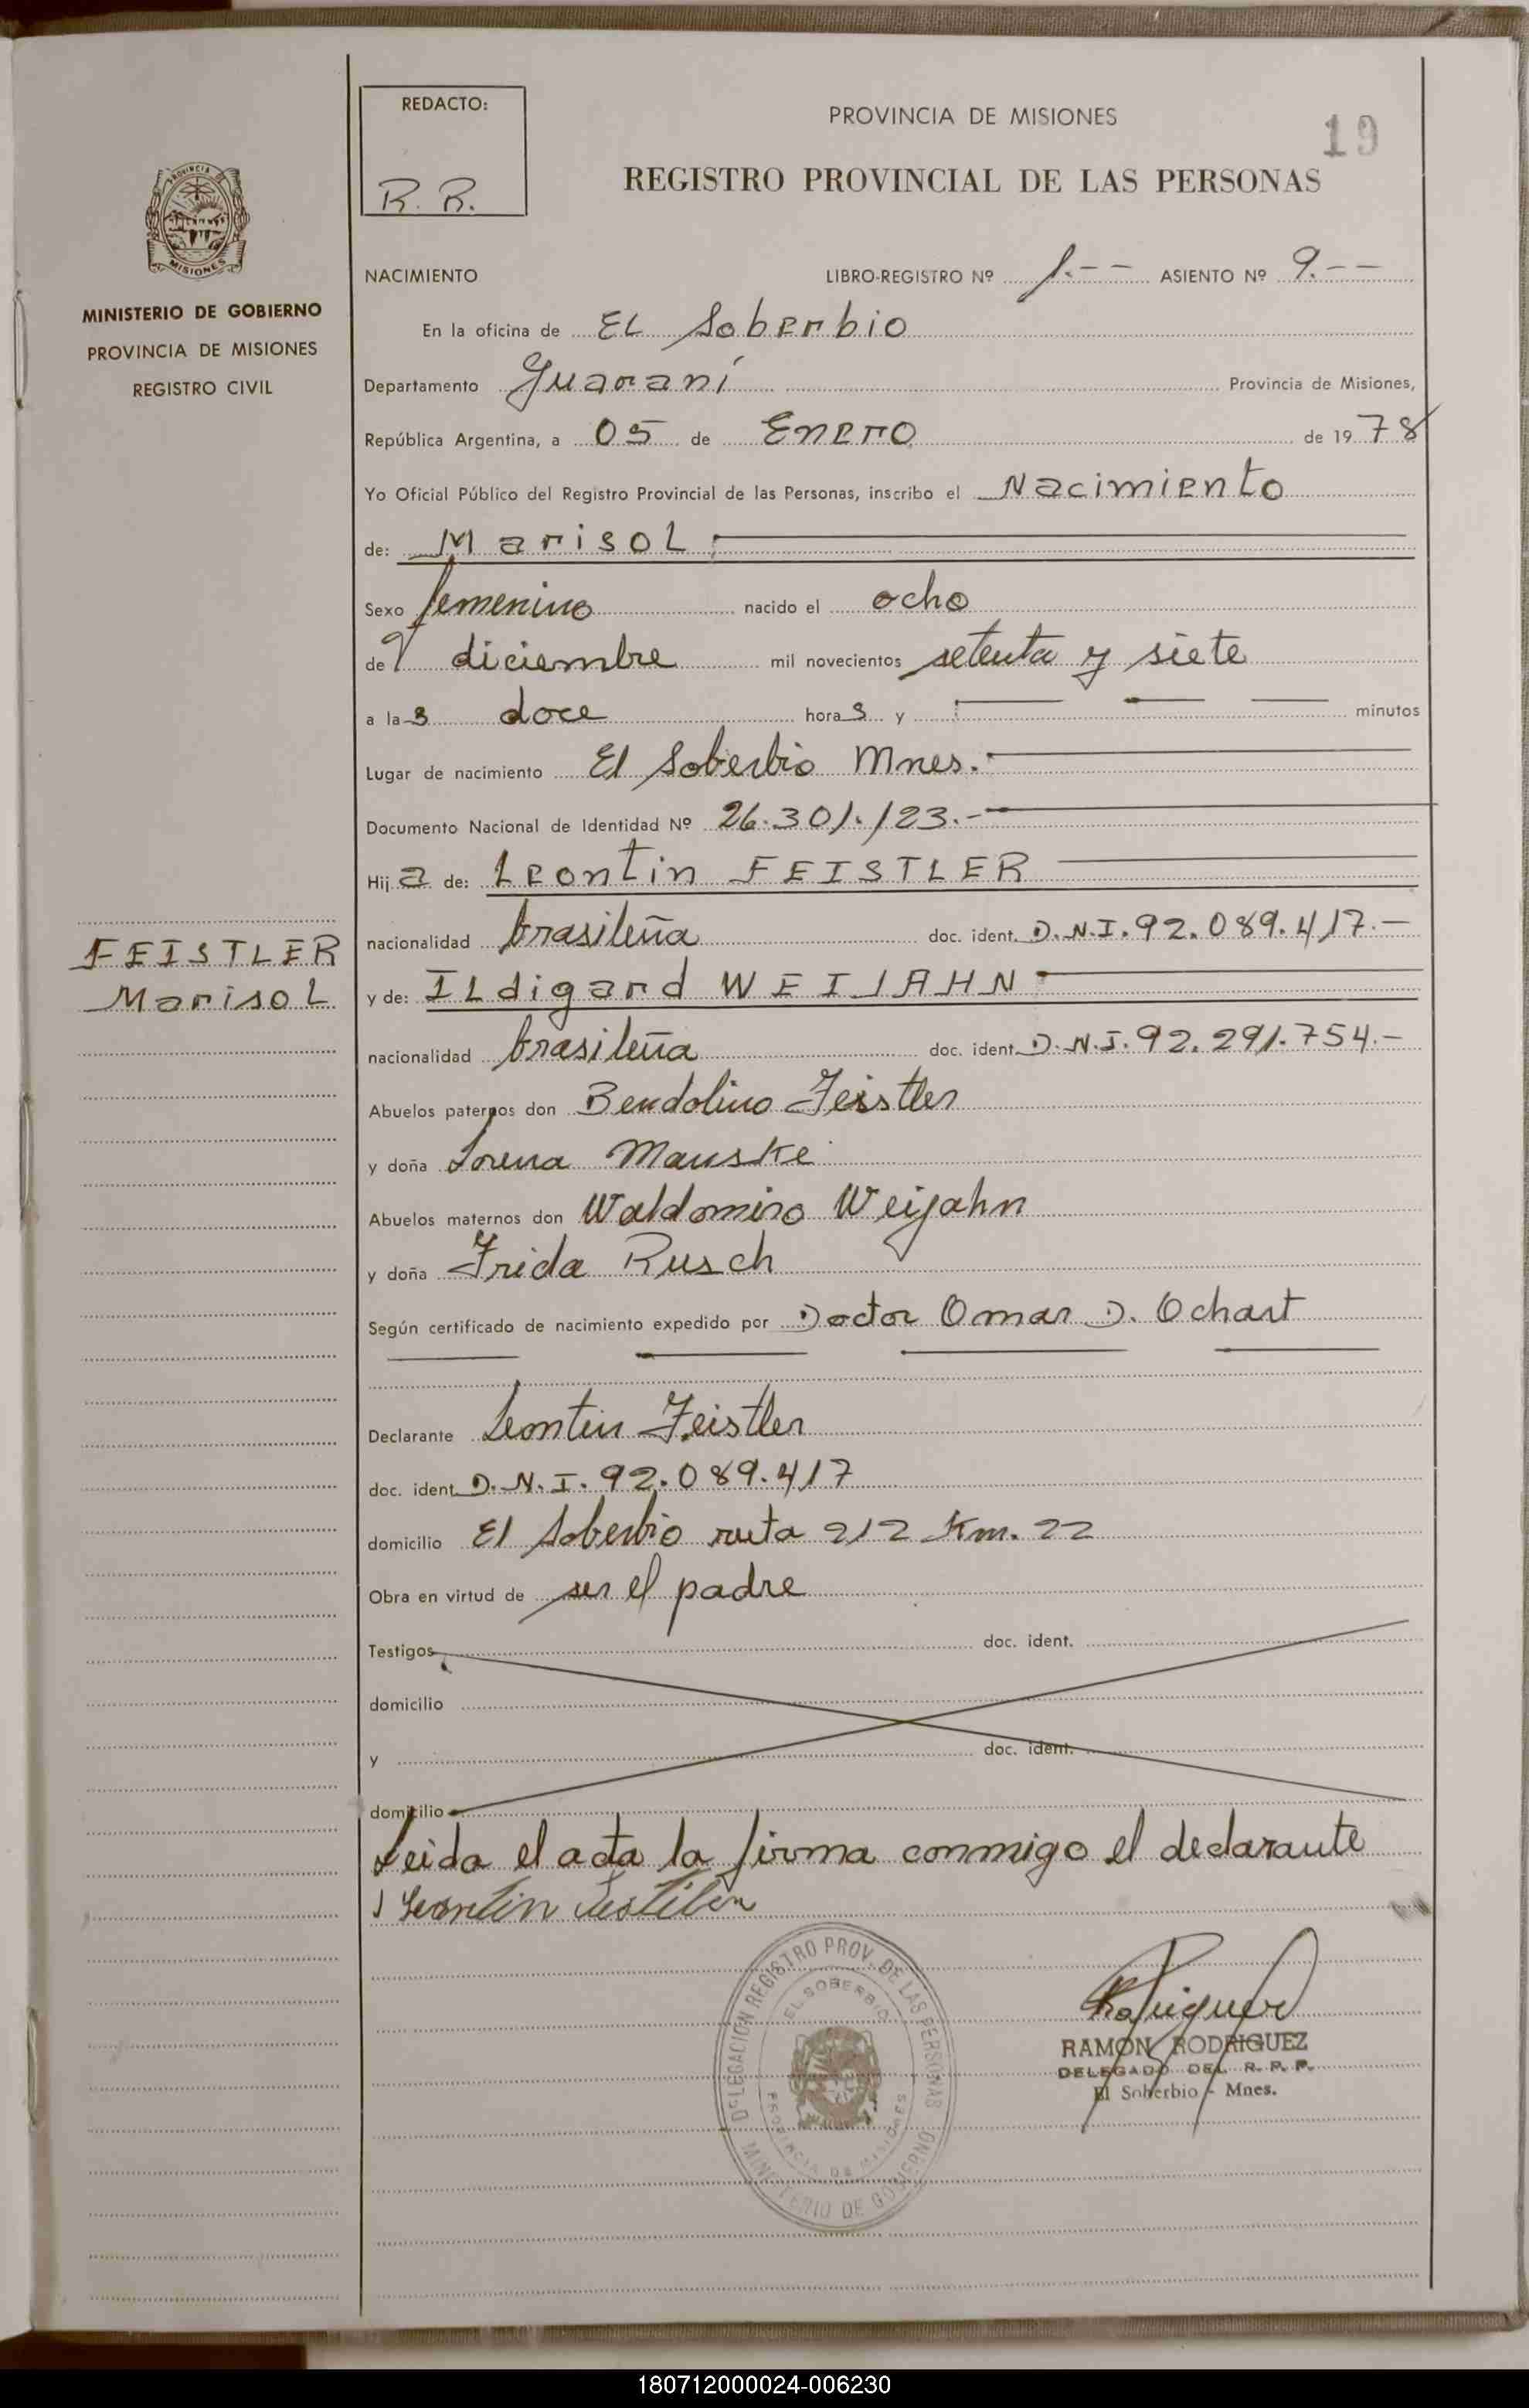 REDACTO:
R. R.
PROVINCIA DE MISIONES
19
REGISTRO PROVINCIAL DE LAS PERSONAS
PROVINCIA
MISIONES
MINISTERIO DE GOBIERNO
PROVINCIA DE MISIONES
REGISTRO CIVIL
NACIMIENTO LIBRO-REGISTRO Nº 1.-- ASIENTO Nº 9.--
En la oficina de EL Soberbio
Departamento Guaraní Provincia de Misiones,
República Argentina, a 05 de Enero de 1978
Yo Oficial Público del Registro Provincial de las Personas, inscribo el Nacimiento
de: MarisoL
Sexo femenino nacido el ocho
de diciembre mil novecientos setenta y siete
a las doce horas y minutos
Lugar de nacimiento El Soberbio Mnes.
Documento Nacional de Identidad Nº 26.301.123.-
Hija de: Leontin FEISTLER
nacionalidad brasileña doc. ident. D.N.I. 92.089.417.-
FEISTLER
MarisoL
y de: ILdigard WEIJAHN
nacionalidad brasileña doc. ident. D.N.I. 92.291.754.-
Abuelos paternos don Bendolino Feistler
y doña Lorena Manske
Abuelos maternos don Waldomiro Weijahn
y doña Frida Rusch
Según certificado de nacimiento expedido por Doctor Omar D. Ochart
Declarante Leontin Feistler
doc. ident. D.N.I. 92.089.417
domicilio El Soberbio ruta 212 Km. 22
Obra en virtud de ser el padre
Testigos doc. ident.
domicilio
y doc. ident.
domicilio
Leida el acta la firma conmigo el declarante
Leontin
DELEGACION REGISTRO PROV. DE LAS PERSONAS
EL SOBERBIO
PROVINCIA DE MISIONES
MINISTERIO DE GOBIERNO
RAMON RODRIGUEZ
DELEGADO DEL R. P. P.
El Soberbio - Mnes.
180712000024-006230